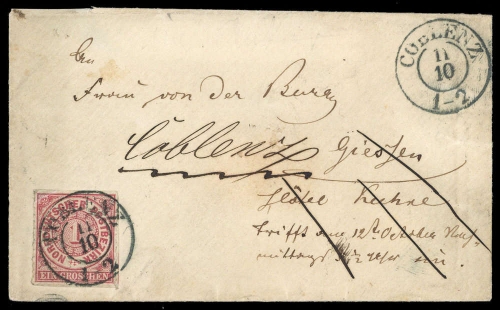 COBLENZ
11
10
1-2
An
Frau von der Burg
Coblenz Giessen
trifft am 12ten October Nach-
mittags Uhr ein.
COBLENZ
11
10
2
NORDDEUTSCHER POSTBEZIRK
1
EIN GROSCHEN